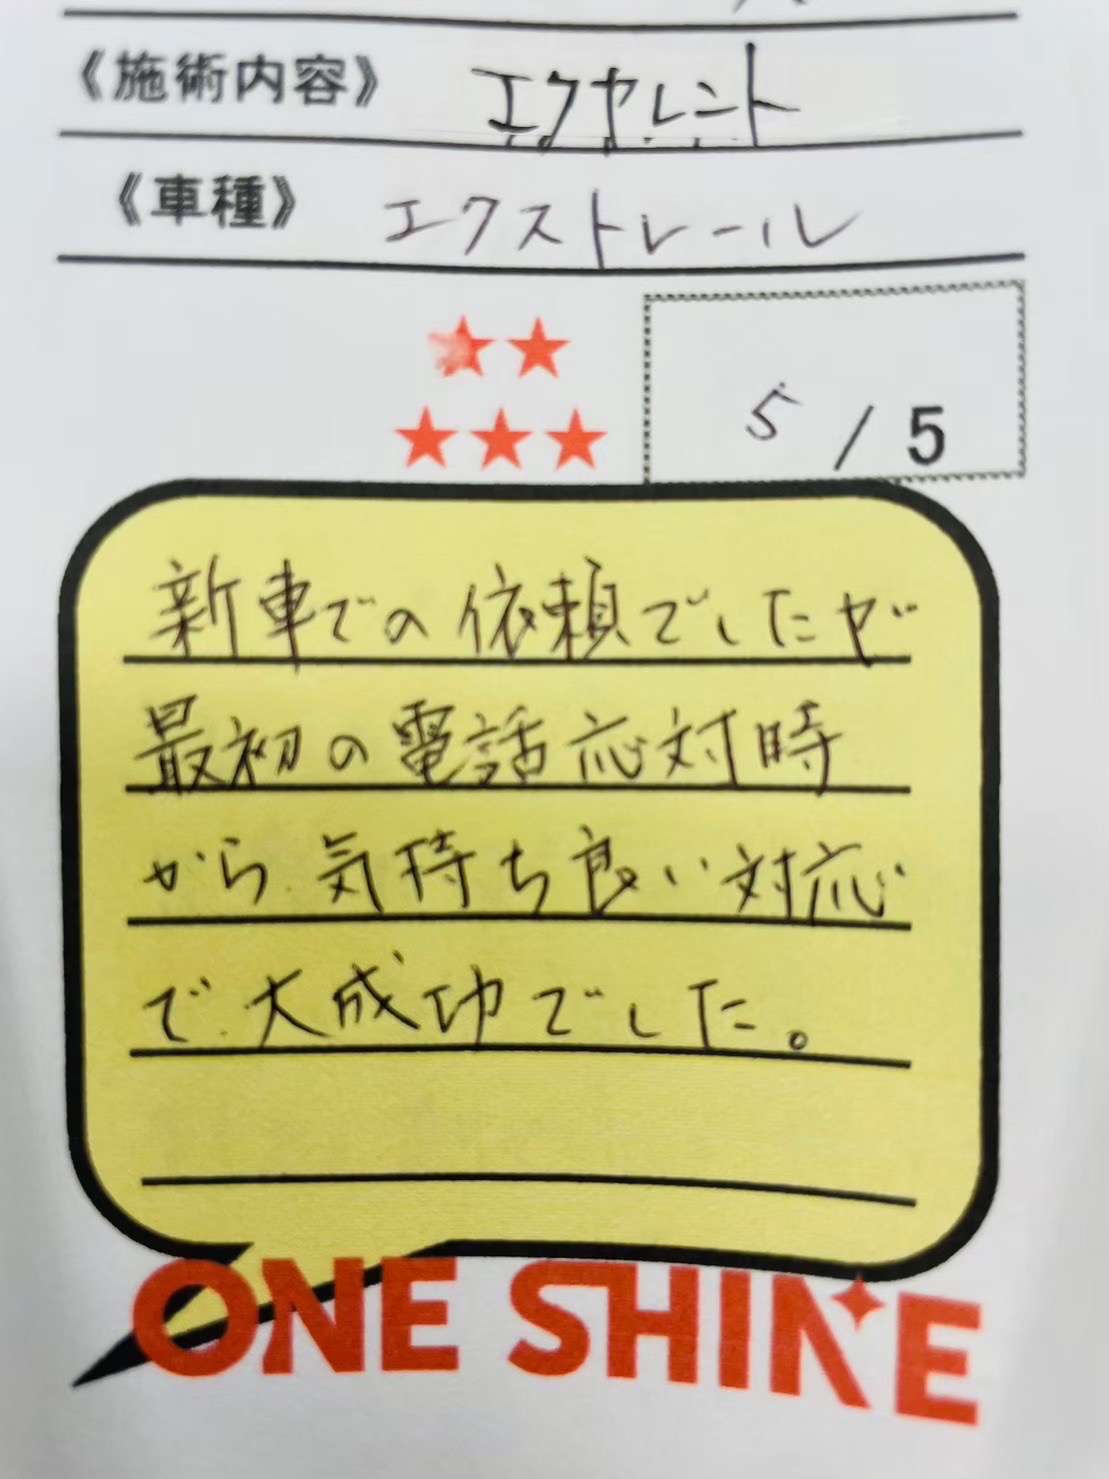 《施術内容》 エクセレント
《車種》 エクストレール
★★
★★★
5/5
新車での依頼でしたが
最初の電話応対時
から気持ち良い対応
で大成功でした。
ONE SHINE